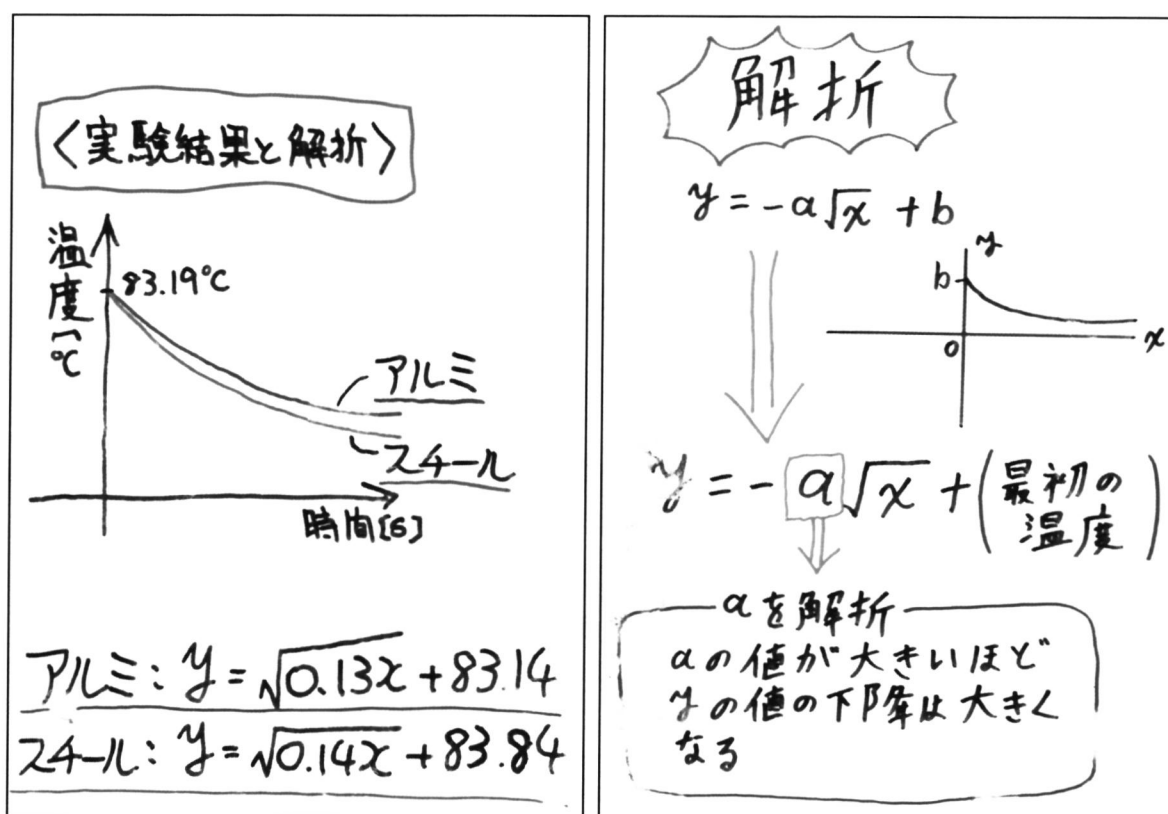 〈実験結果と解析〉
温度[℃
83.19℃
アルミ
スチール
時間[s]
アルミ: y=√0.13x+83.14
スチール: y=√0.14x+83.84
解折
y=-a√x+b
y
b
0
x
y=-a√x+(最初の
温度)
aを解折
aの値が大きいほど
yの値の下降は大きく
なる